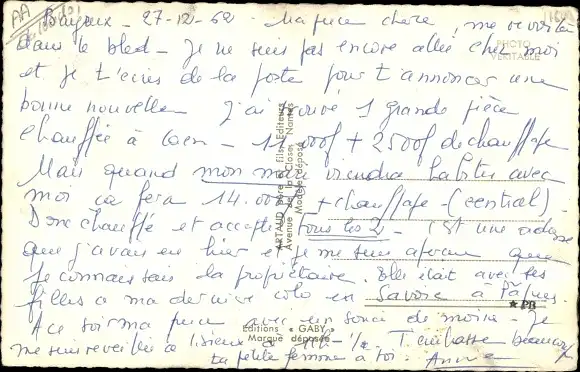 Bayeux - 27-12-62. Ma puce chère, me revoilà
dans le bled - Je ne suis pas encore allée chez moi
et je t'écris de la poste pour t'annoncer une
bonne nouvelle. J'ai trouvé 1 grande pièce
chauffée à Caen - 11.000f + 2500f de chauffage
Mais quand mon mari viendra habiter avec
moi ça fera 14.000 + chauffage - (central).
Donc chauffé et accepte tous les 2 - C'est une adresse
que j'avais eu hier et je me suis aperçu que
je connaissais la propriétaire. Elle était avec les
filles à ma dernière colo en Savoie à Pâques.
A ce soir ma puce avec un souci de moins. Je
me suis réveillée à Lisieux à 11h 1/2. T'embrasse beaucoup
ta petite femme à toi. Anne
PHOTO
VERITABLE
ARTAUD Père et Fils, Editeurs
Avenue de la Close, Nantes
Modèle déposé
★ PB
Editions « GABY »
Marque déposée